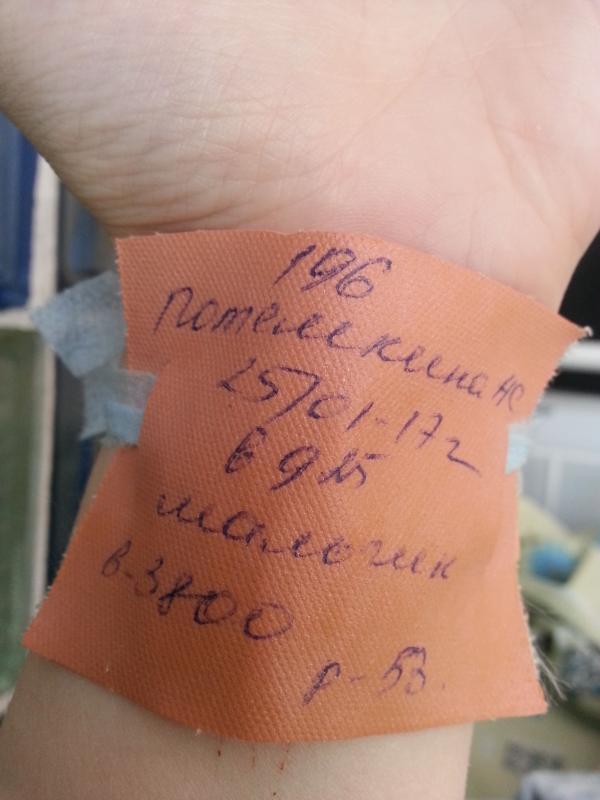 196
Потемкина НС
25/01-17г
в 9 15
мальчик
в-3800
р-53.